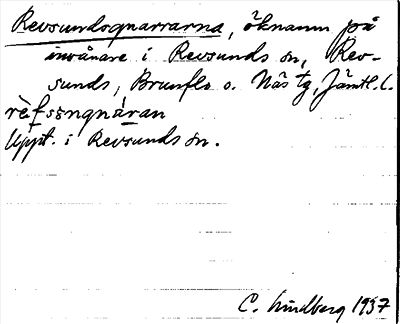 Revsundsgnarrarna, öknamn på
invånare i Revsunds sn, Rev-
sunds, Brunflo o. Näs tg, Jämtl. l.
rèfsəngnáran
Uppt. i Revsunds sn.
C. Lindberg 1937